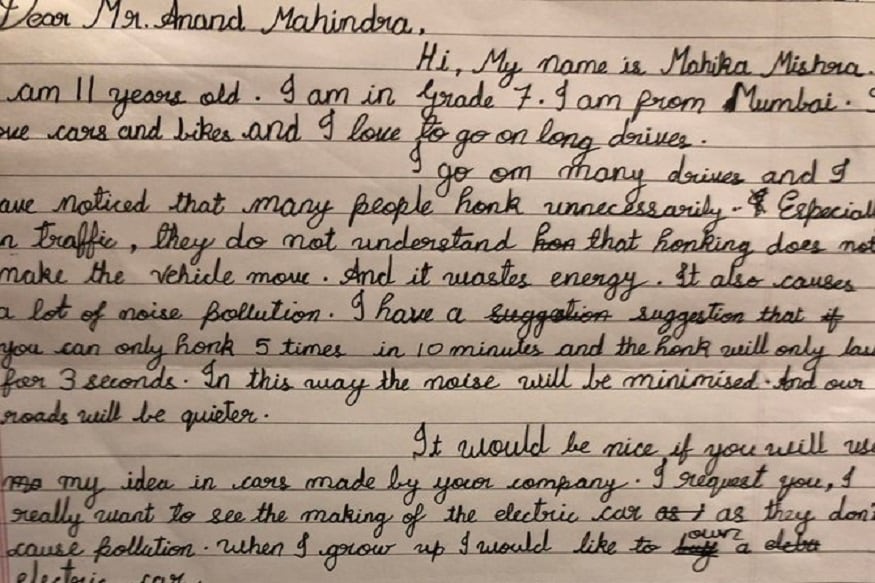 Dear Mr. Anand Mahindra,
Hi, My name is Mahika Mishra.
am 11 years old. I am in Grade 7. I am from Mumbai. I
ove cars and bikes and I love to go on long drives.
I go on many drives and I
ave noticed that many people honk unnecessarily. Especiall
n traffic, they do not understand hon that honking does not
make the vehicle move. And it wastes energy. It also causes
a lot of noise pollution. I have a suggestion suggestion that if
you can only honk 5 times in 10 minutes and the honk will only las
for 3 seconds. In this way the noise will be minimised. And our
roads will be quieter.
It would be nice if you will use
my idea in cars made by your company. I request you, I
really want to see the making of the electric car as i as they don't
cause pollution. When I grow up I would like to own a
electric car.